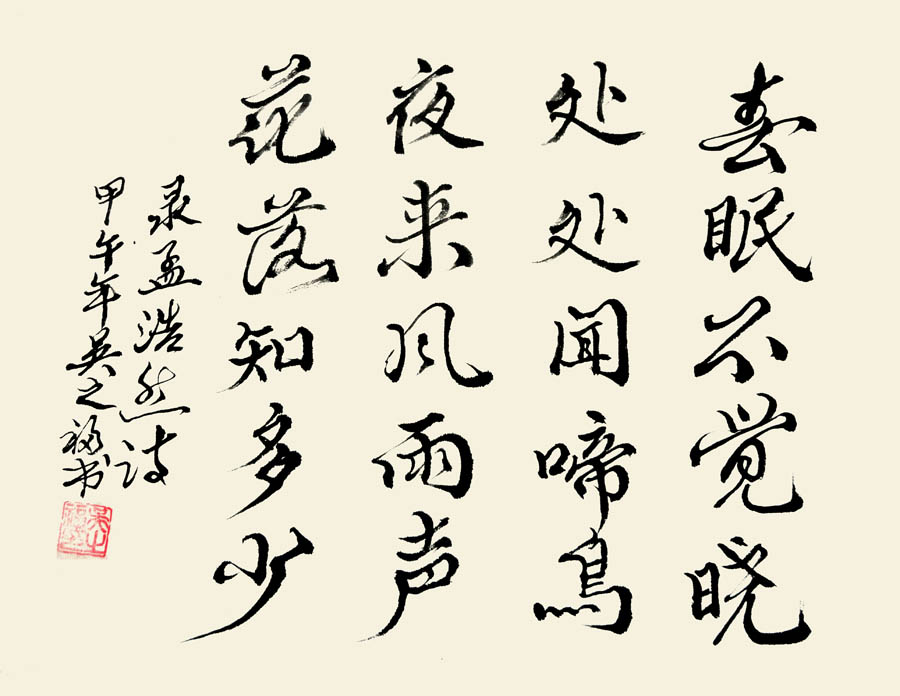 春眠不觉晓
处处闻啼鸟
夜来风雨声
花落知多少
录孟浩然诗
甲午年吴之福书